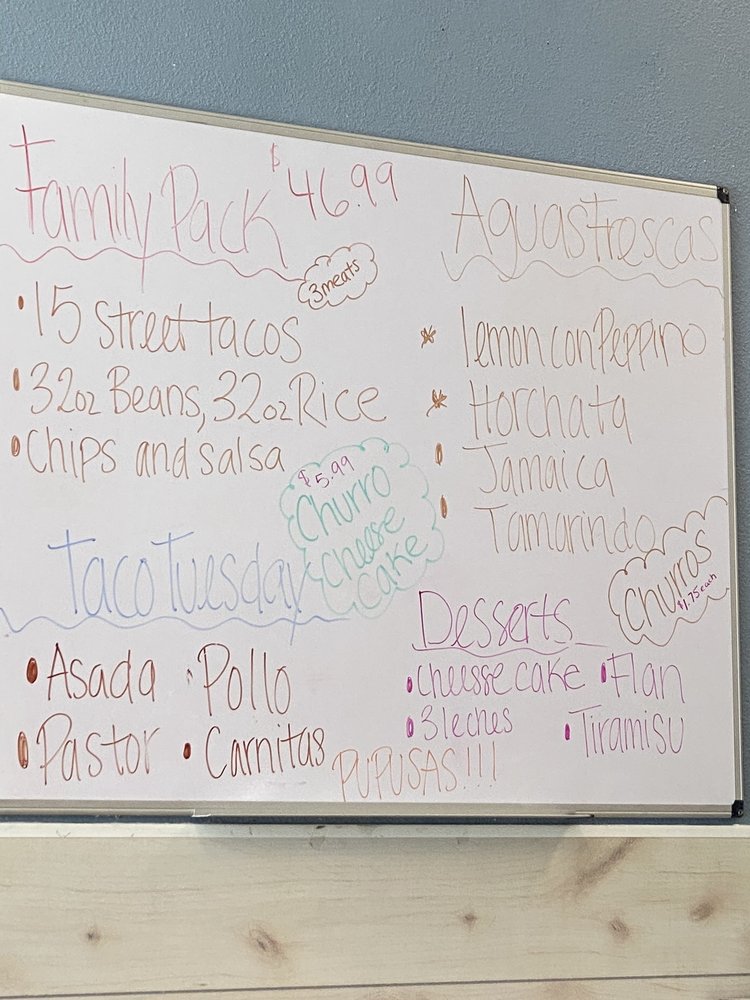 Family Pack $46.99
3 meats
• 15 street tacos
• 32oz Beans, 32oz Rice
• Chips and salsa
$5.99
Churro
cheese
cake
Taco Tuesday
• Asada • Pollo
• Pastor • Carnitas
PUPUSAS!!!
Aguas Frescas
* lemon con Peppino
* Horchata
• Jamaica
• Tamarindo
Churros
$1.75 each
Desserts
• cheesse cake • Flan
• 3 leches • Tiramisu